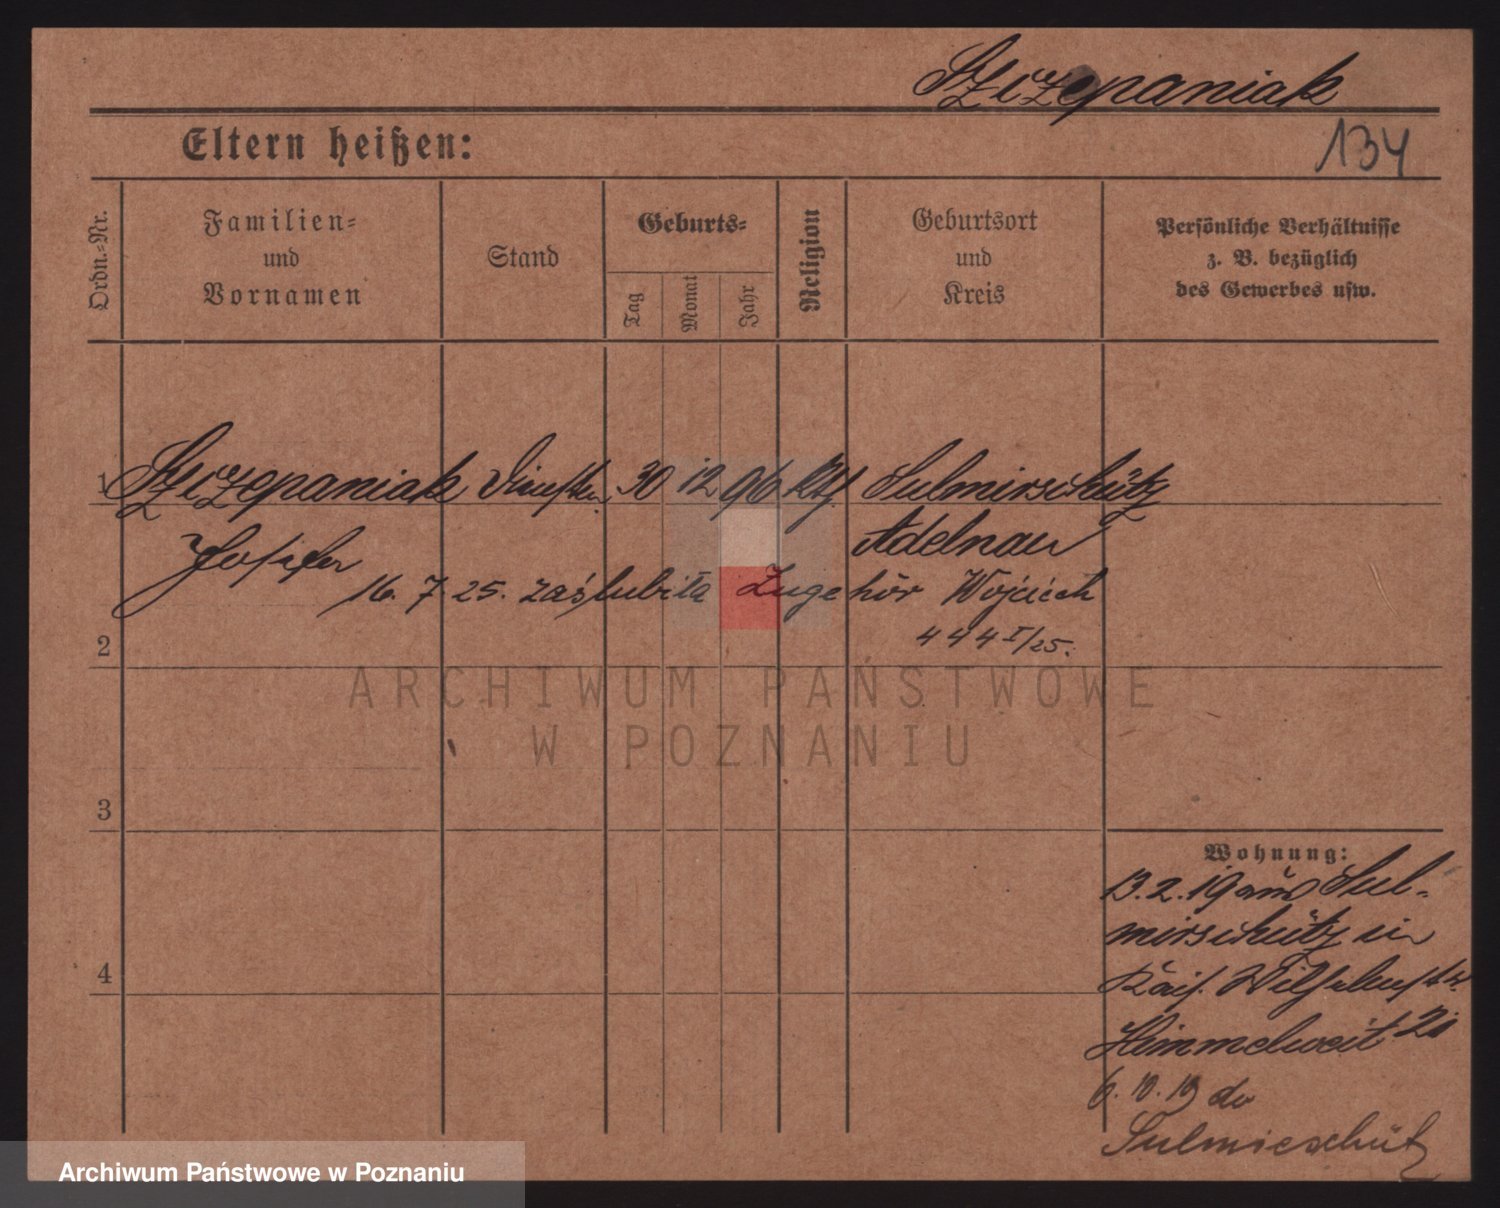 Szczepaniak
134
Eltern heißen:
Ordn.-Nr.
Familien-
und
Vornamen
Stand
Geburts-
Tag
Monat
Jahr
Religion
Geburtsort
und
Kreis
Persönliche Verhältnisse
z. B. bezüglich
des Gewerbes usw.
1 Szczepaniak 30 12 96 Kth Sulmirschütz
Josefa Adelnau
16. 7 25. zaślubiła Zugehör Wojciech
444 I/25.
2
ARCHIWUM PAŃSTWOWE
W POZNANIU
3
Wohnung:
13.2.19 aus Sul-
mirschütz in
4
Kais. Wilhelmstr.
Himmelweit
6.10.19 do
Sulmieschütz
Archiwum Państwowe w Poznaniu